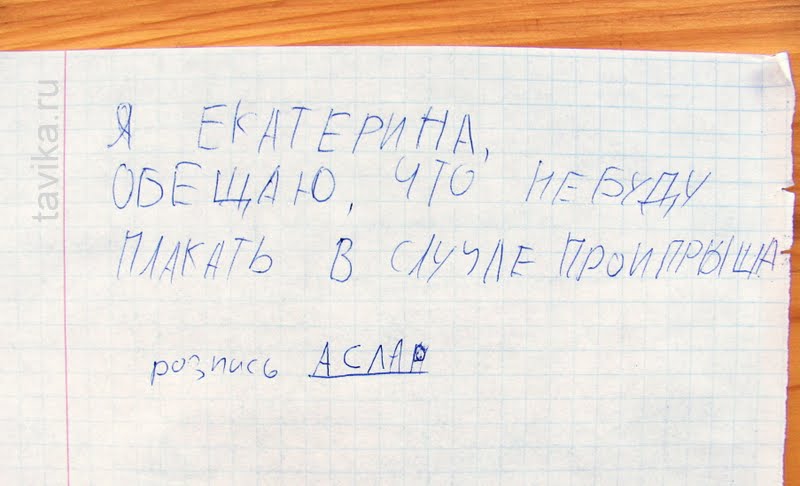 tavika.ru
Я ЕКАТЕРИНА,
ОБЕЩАЮ, ЧТО НЕ БУДУ
ПЛАКАТЬ В СЛУЧАЕ ПРОИПРЫША
розпись